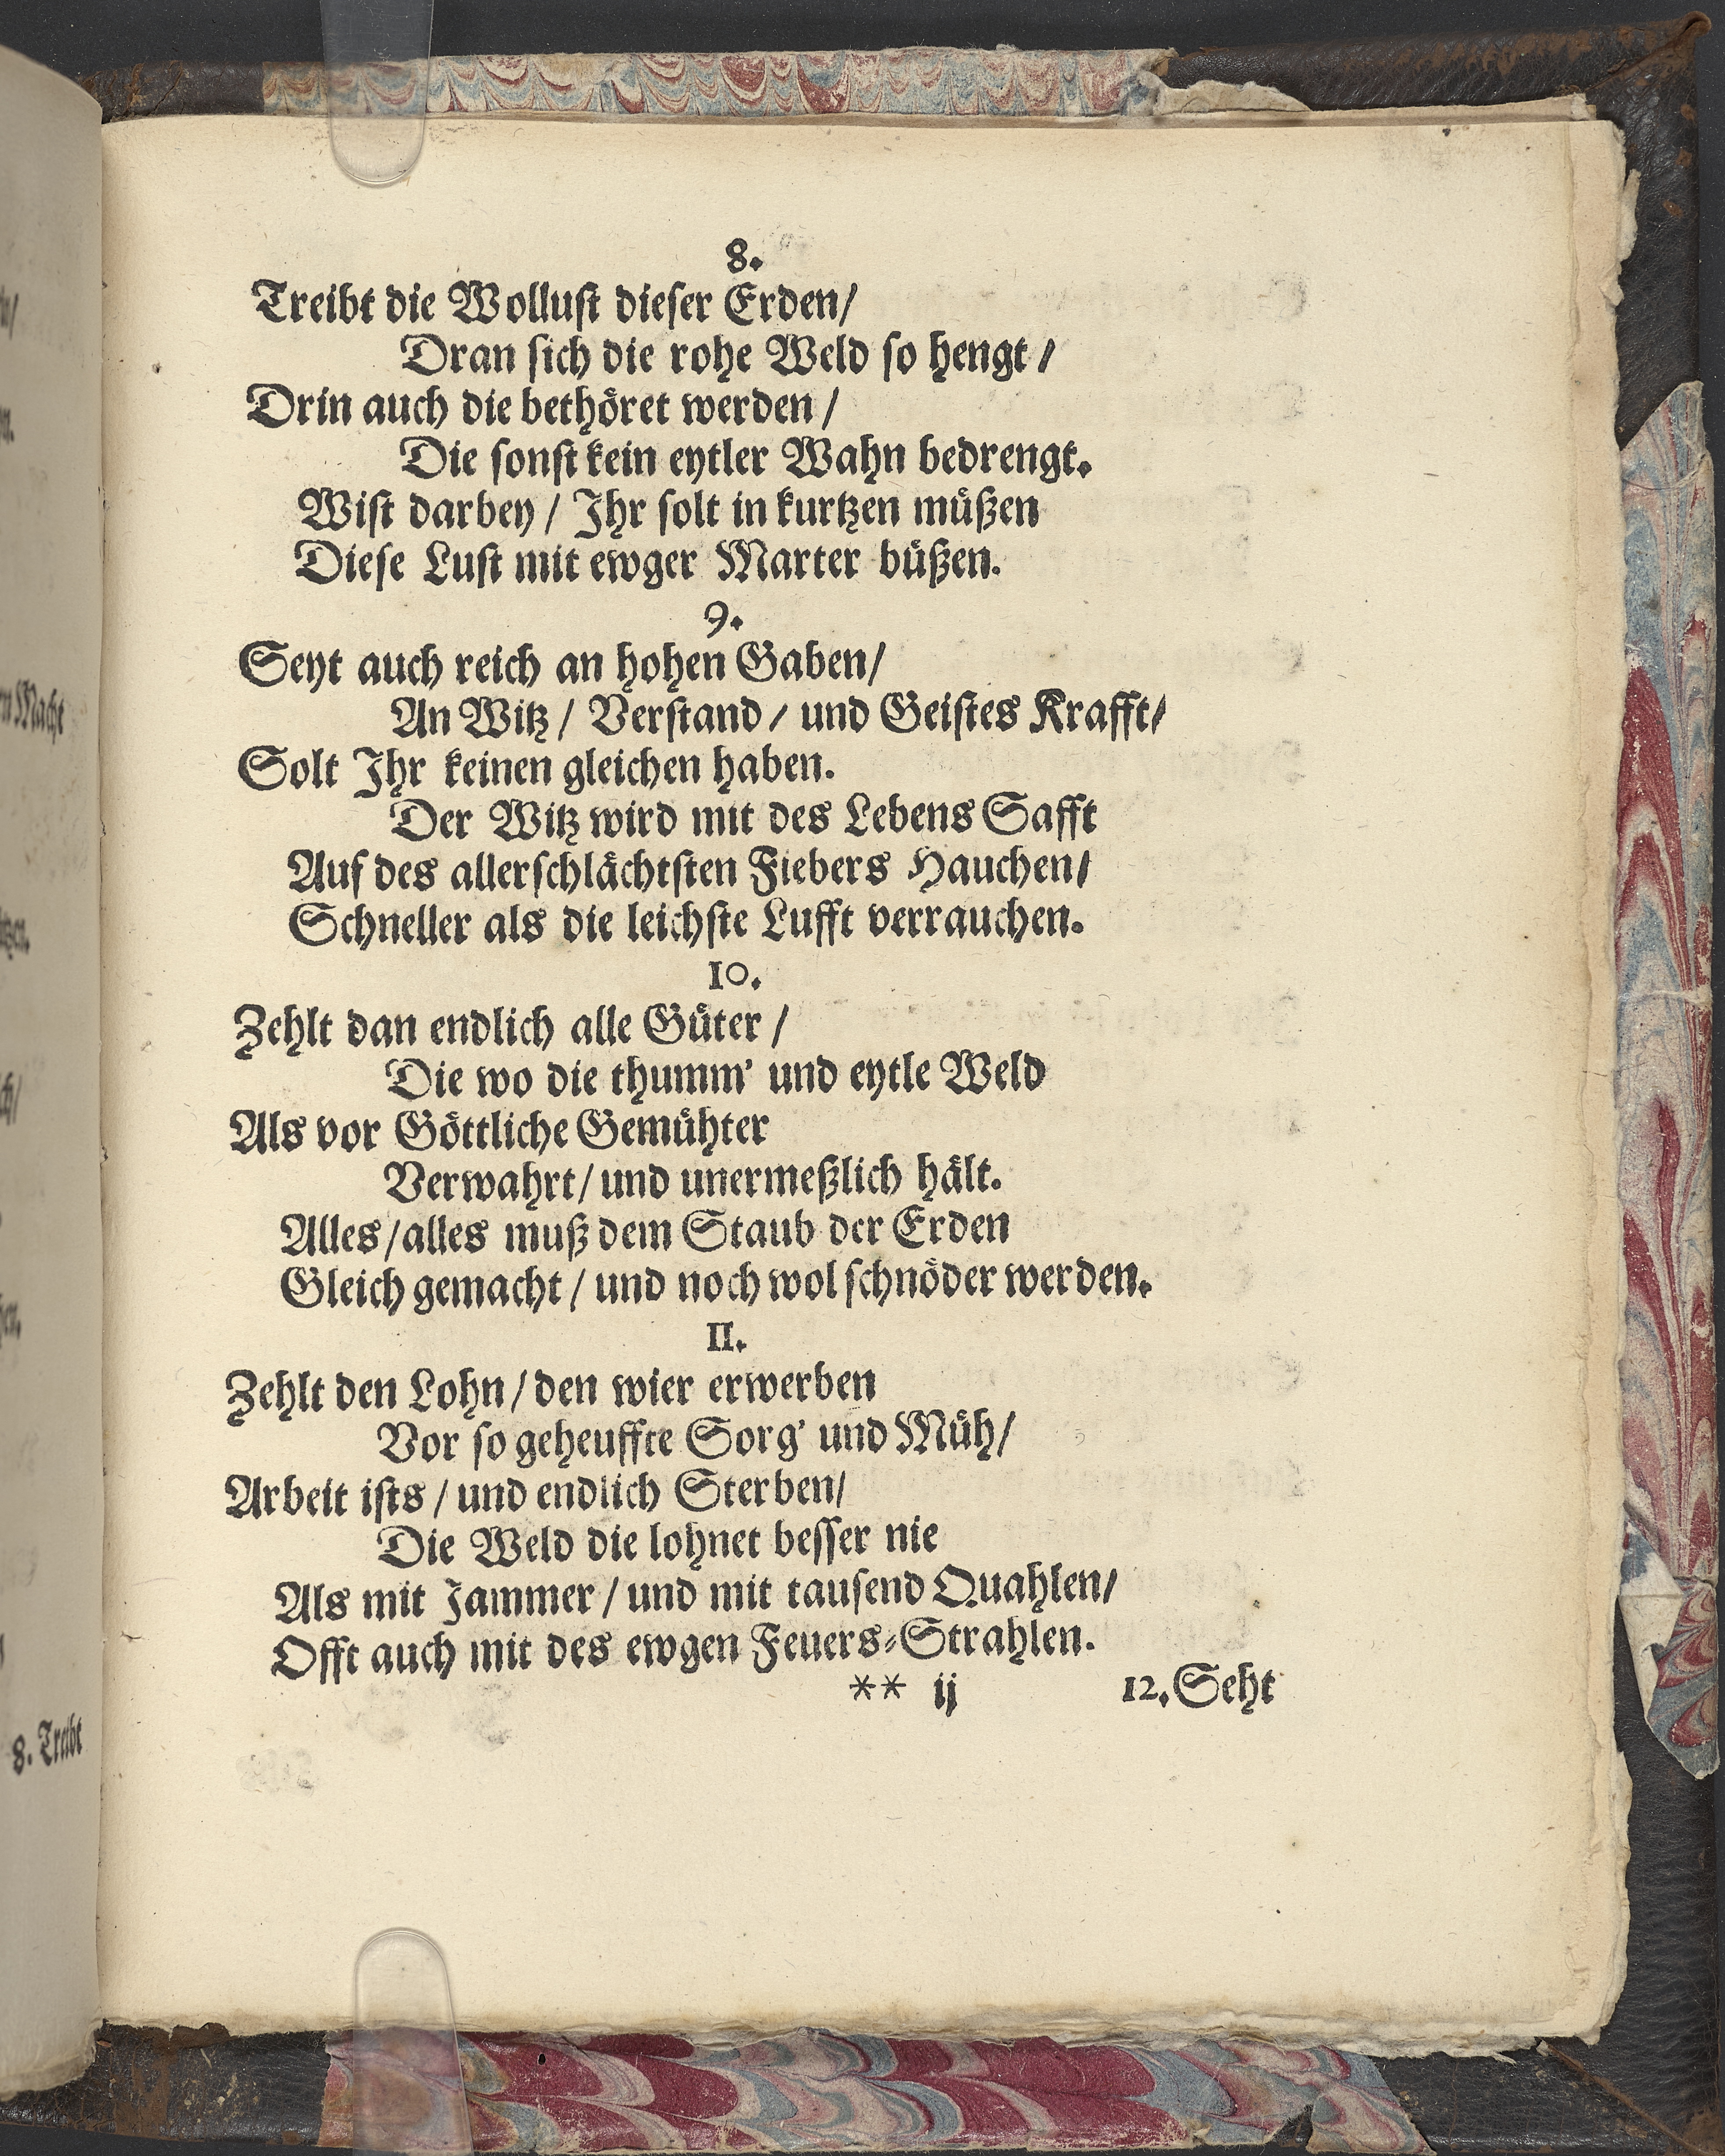 8.
Treibt die Wolluſt dieſer Erden/
Dran ſich die rohe Weld ſo hengt /
Drin auch die bethöret werden /
Die ſonſt kein eytler Wahn bedrengt.
Wiſt darbey / Ihr ſolt in kurtzen müßen
Dieſe Luſt mit ewger Marter büßen.
9.
Seyt auch reich an hohen Gaben/
An Witz / Verſtand / und Geiſtes Krafft/
Solt Ihr keinen gleichen haben.
Der Witz wird mit des Lebens Safft
Auf des allerſchlächtſten Fiebers Hauchen/
Schneller als die leichſte Lufft verrauchen.
10.
Zehlt dan endlich alle Güter /
Die wo die thumm' und eytle Weld
Als vor Göttliche Gemühter
Verwahrt / und unermeßlich hält.
Alles / alles muß dem Staub der Erden
Gleich gemacht / und noch wol ſchnöder werden.
11.
Zehlt den Lohn / den wier erwerben
Vor ſo geheuffte Sorg' und Müh/
Arbeit iſts / und endlich Sterben/
Die Weld die lohnet beſſer nie
Als mit Jammer / und mit tauſend Quahlen/
Offt auch mit des ewgen Feuers-Strahlen.
** ij 12. Seht
n Macht
8. Treibt